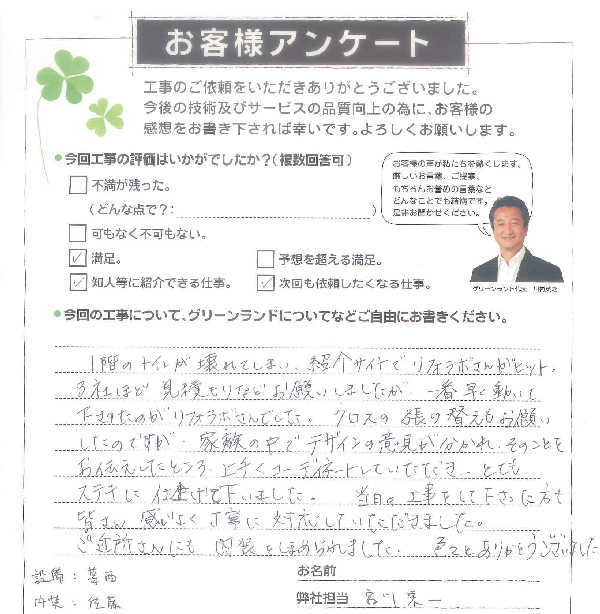 お客様アンケート
工事のご依頼をいただきありがとうございました。
今後の技術及びサービスの品質向上の為に、お客様の
感想をお書き下されば幸いです。よろしくお願いします。
今回工事の評価はいかがでしたか?(複数回答可)
不満が残った。
(どんな点で?: )
可もなく不可もない。
満足。
予想を超える満足。
知人等に紹介できる仕事。
次回も依頼したくなる仕事。
お客様の声が私たちを動かします。
厳しいお言葉、ご提案、
もちろんお誉めの言葉など
どんなことでも結構です。
是非お聞かせください。
グリーンランド代表
今回の工事について、グリーンランドについてなどご自由にお書きください。
1階のトイレが壊れてしまい、紹介サイトでリフォラボさんがヒット。
3社ほど見積もりなどお願いしましたが、一番早く動いて
下さったのがリフォラボさんでした。クロスの張り替えもお願い
したのですが、家族の中でデザインの意見が分かれ、そのことを
お伝えしたところ、上手くコーディネートしていただき、とても
ステキに仕上げて下いました。当日の工事をして下さった方も
皆さん感じよく丁寧に対応していただきました。
ご近所さんにも内装をほめられました。色々とありがとうございました
設備:葛西
内装:佐藤
お名前
弊社担当